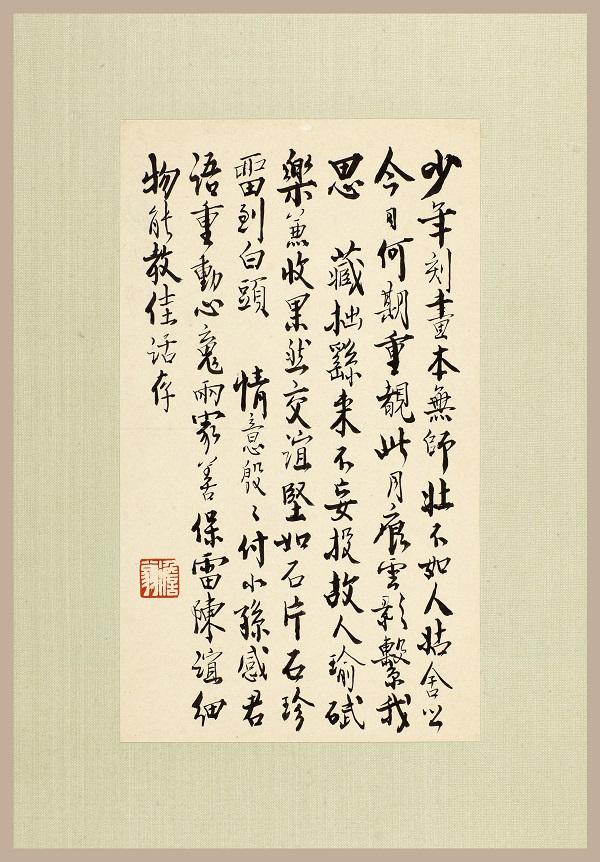 少年刻畫本無師壯不如人姑舍之
今日何期重覩此月痕雲影繫我
思 藏拙繇來不妄投故人瑜珷
樂兼收果然交誼堅如石片石珍
留到白頭 情意殷〻付小孫感君
語重動心魂兩家善保雷陳誼細
物能教佳話存